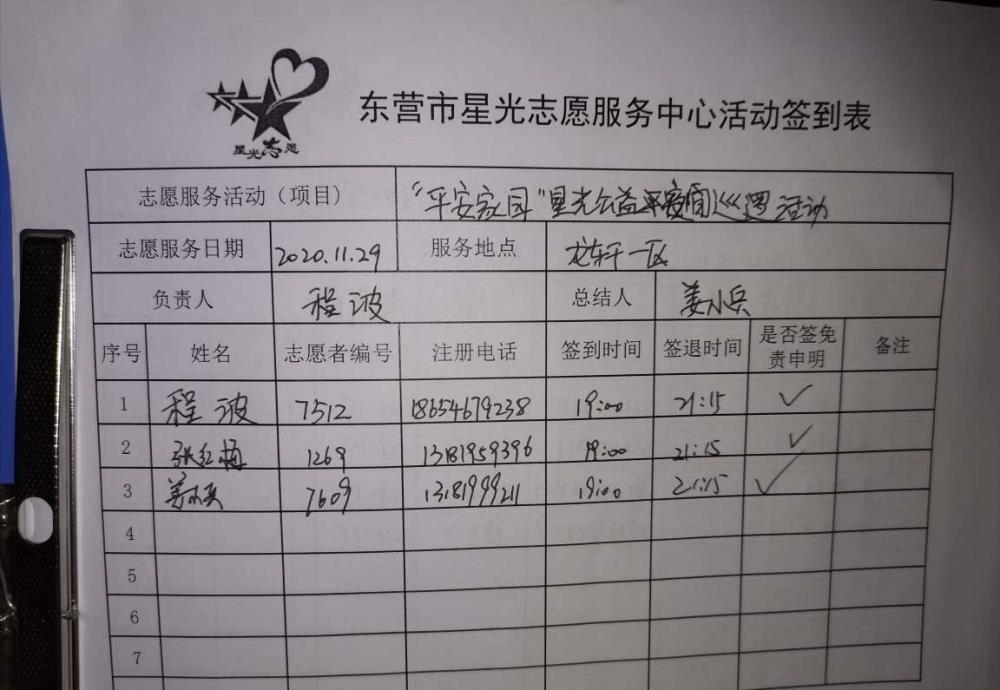 星光志愿
东营市星光志愿服务中心活动签到表
志愿服务活动（项目） “平安家园”星光公益夜间巡逻活动
志愿服务日期 2020.11.29 服务地点 龙东平一区
负责人 程波 总结人 姜小兵
序号 姓名 志愿者编号 注册电话 签到时间 签退时间 是否签免责申明 备注
1 程波 7512 18654679238 19:00 21:15 ✓
2 张红梅 1269 13181959396 19:00 21:15 ✓
3 姜小兵 7609 13181999211 19:00 21:15 ✓
4
5
6
7